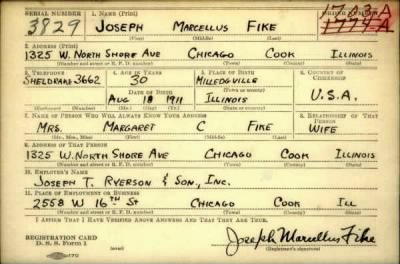 SERIAL NUMBER 1. NAME (Print) ORDER NUMBER
3829 JOSEPH MARCELLUS FIKE 1763-A
1774-A
(First) (Middle) (Last)
2. ADDRESS (Print)
1325 W. NORTH SHORE AVE CHICAGO COOK ILLINOIS
(Number and street or R. F. D. number) (Town) (County) (State)
3. TELEPHONE 4. AGE IN YEARS 5. PLACE OF BIRTH 6. COUNTRY OF CITIZENSHIP
SHELDRAKE 3662 30 MILLEDGVILLE
DATE OF BIRTH (Town or county) U.S.A.
AUG 18 1911 ILLINOIS
(Exchange) (No.) (Mo.) (Day) (Yr.) (State or country)
7. NAME OF PERSON WHO WILL ALWAYS KNOW YOUR ADDRESS 8. RELATIONSHIP OF THAT PERSON
MRS. MARGARET C FIKE WIFE
(Mr., Mrs., Miss) (First) (Middle) (Last)
9. ADDRESS OF THAT PERSON
1325 W. NORTH SHORE AVE CHICAGO COOK ILLINOIS
(Number and street or R. F. D. number) (Town) (County) (State)
10. EMPLOYER'S NAME
JOSEPH T. RYERSON & SON, INC.
11. PLACE OF EMPLOYMENT OR BUSINESS
2558 W 16TH ST CHICAGO COOK ILL
(Number and street or R. F. D. number) (Town) (County) (State)
I AFFIRM THAT I HAVE VERIFIED ABOVE ANSWERS AND THAT THEY ARE TRUE.
REGISTRATION CARD
D. S. S. Form 1 (over) Joseph Marcellus Fike
(Registrant's signature)